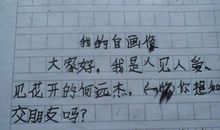 我的自画像
大家好，我是人见人爱、
见花开的何远杰，你想和
交朋友吗？